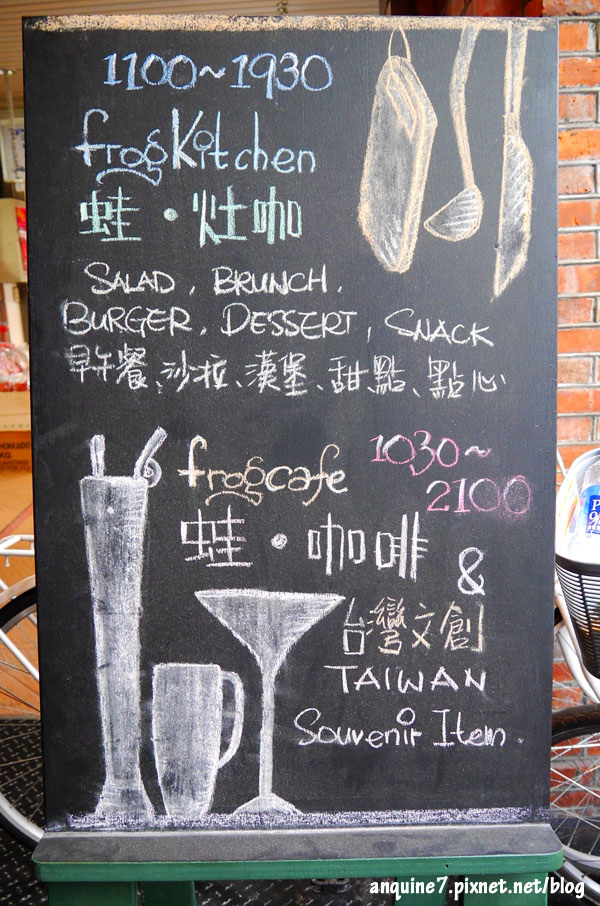 1100~1930
frogKitchen
蛙·灶咖
SALAD, BRUNCH,
BURGER, DESSERT, SNACK
早午餐、沙拉、漢堡、甜點、點心
frogcafe 1030~
2100
蛙·咖啡
&
台灣文創
TAIWAN
Souvenir Item.
anquine7.pixnet.net/blog